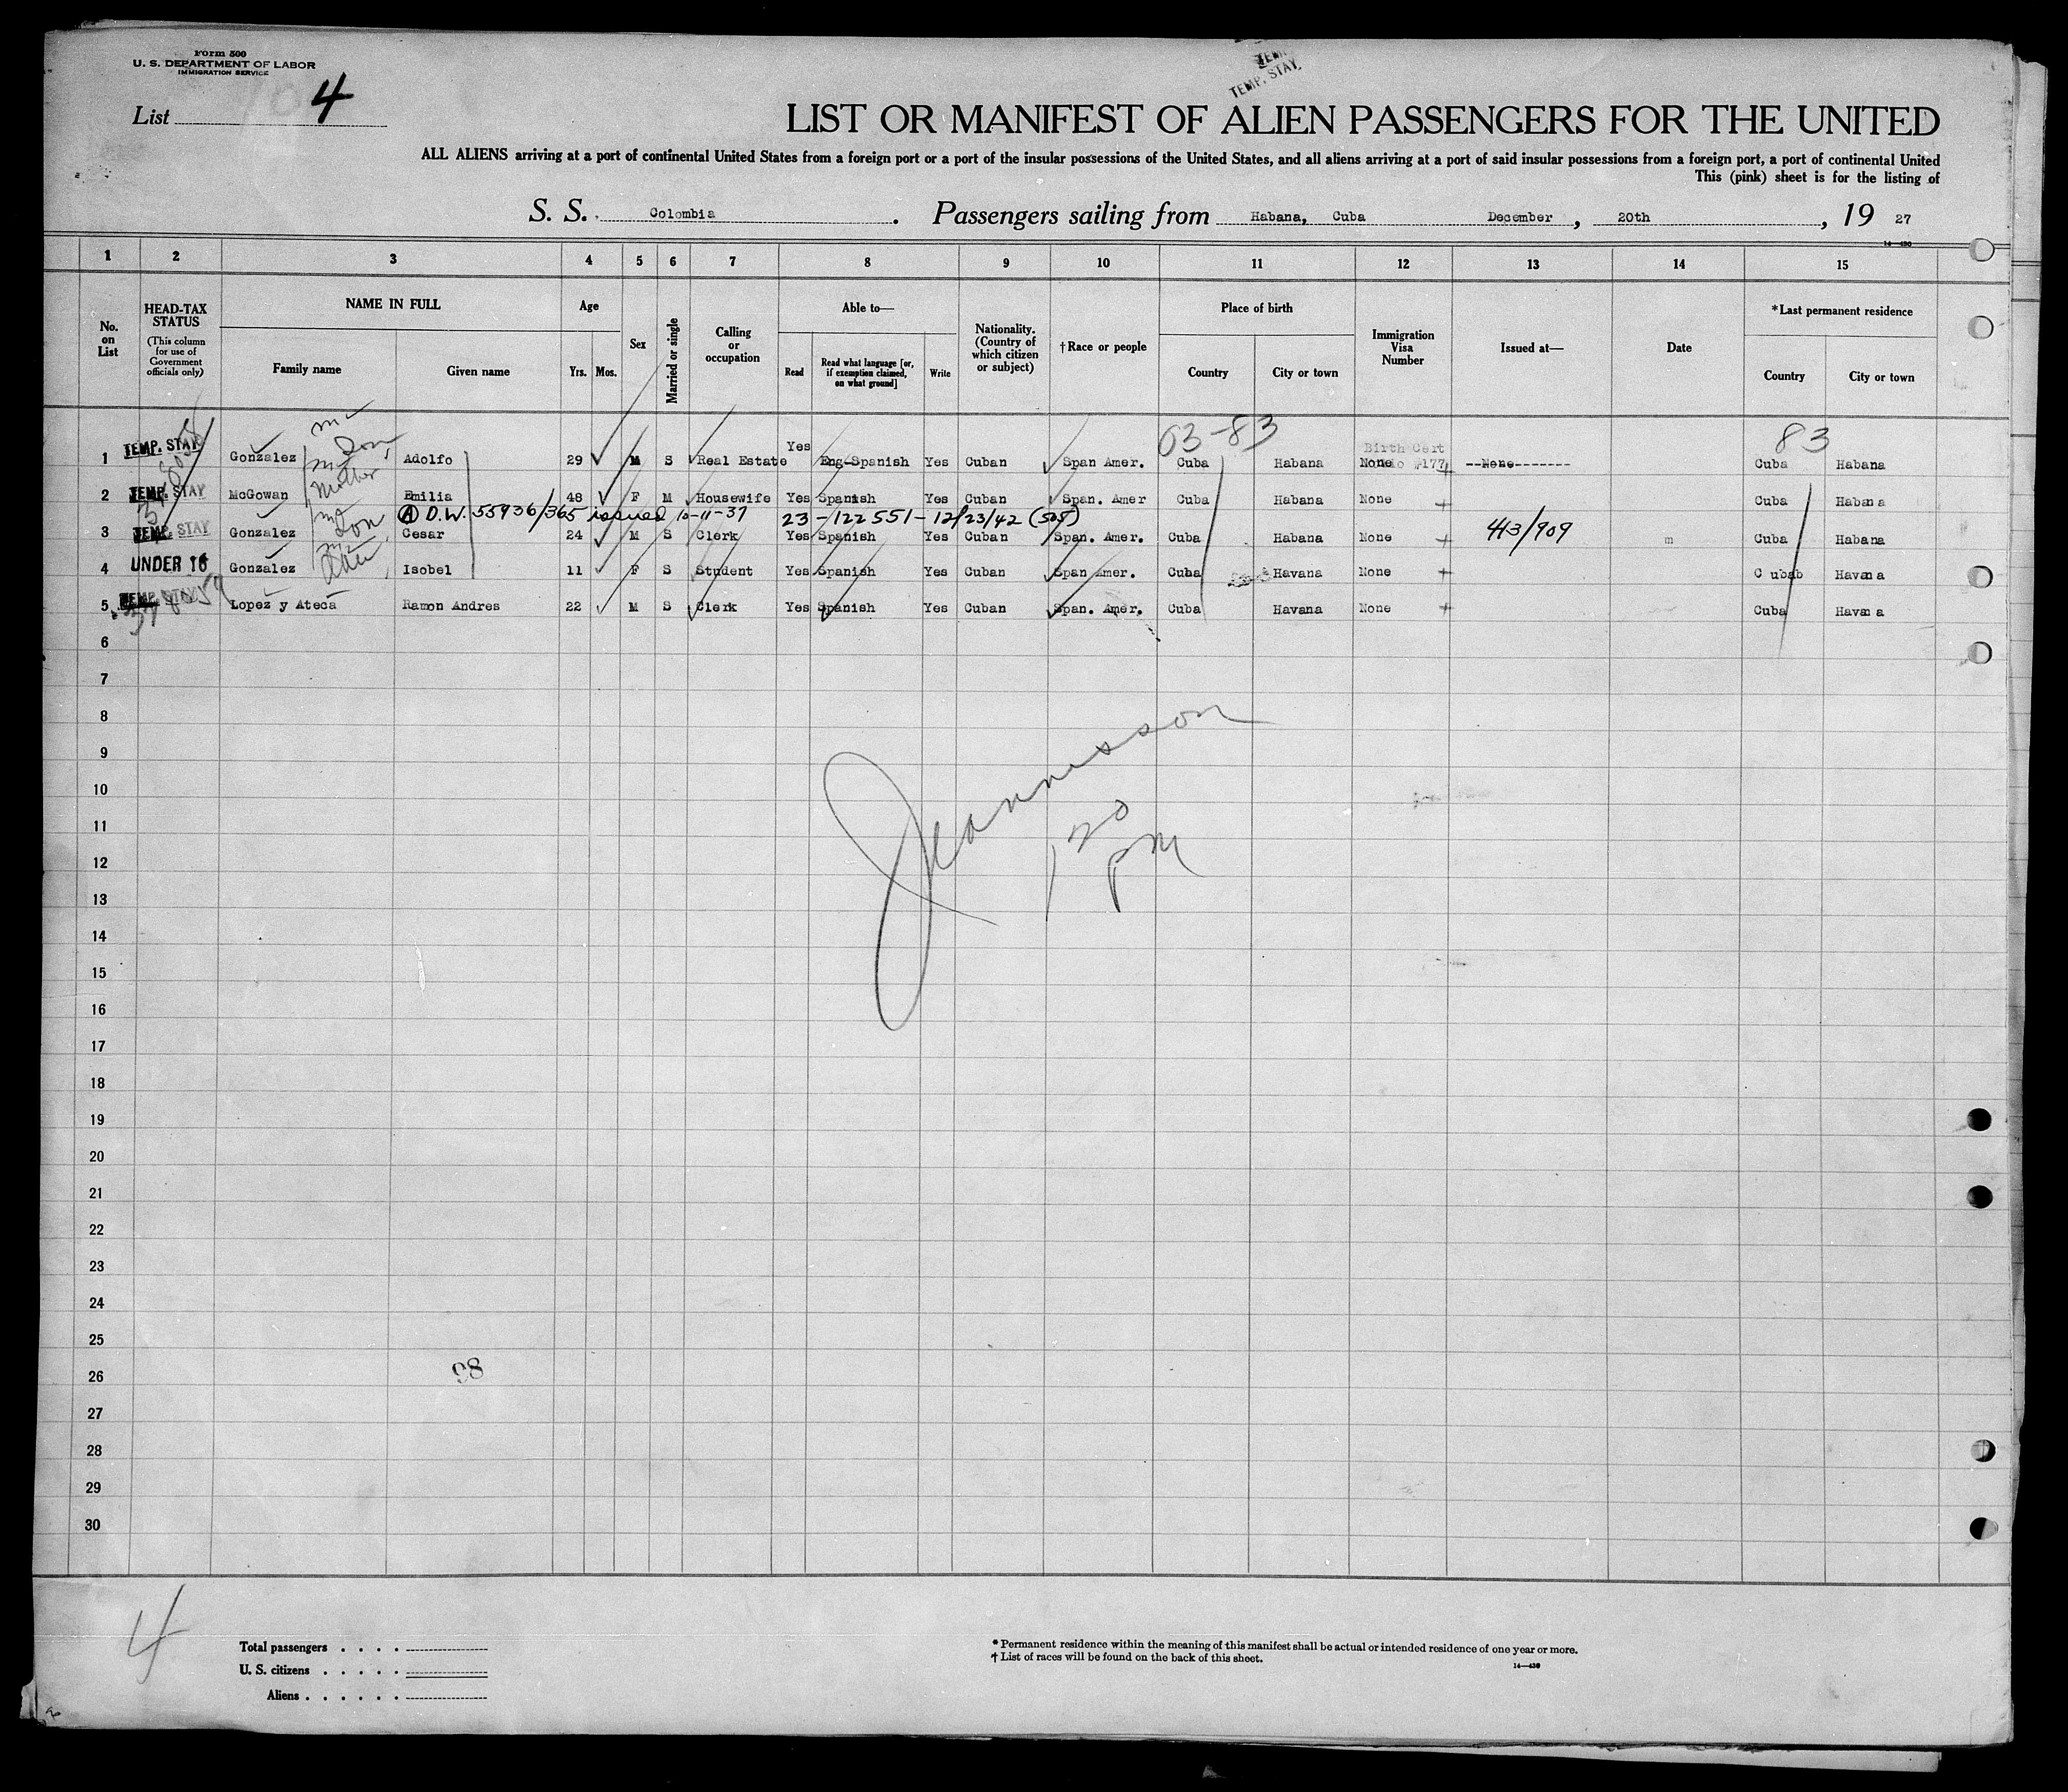 Form 500
U. S. DEPARTMENT OF LABOR
IMMIGRATION SERVICE
TEMP. STAY
List 4
LIST OR MANIFEST OF ALIEN PASSENGERS FOR THE UNITED
ALL ALIENS arriving at a port of continental United States from a foreign port or a port of the insular possessions of the United States, and all aliens arriving at a port of said insular possessions from a foreign port, a port of continental United
This (pink) sheet is for the listing of
S. S. Colombia. Passengers sailing from Habana, Cuba December, 20th, 19 27
1 2 3 4 5 6 7 8 9 10 11 12 13 14 15
No. on List
HEAD-TAX STATUS
(This column for use of Government officials only)
NAME IN FULL
Family name Given name
Age
Yrs. Mos.
Sex
Married or single
Calling or occupation
Able to—
Read
Read what language [or, if exemption claimed, on what ground]
Write
Nationality. (Country of which citizen or subject)
†Race or people
Place of birth
Country City or town
Immigration Visa Number
Issued at—
Date
*Last permanent residence
Country City or town
03-83 83
1 TEMP. STAY Gonzalez Son Adolfo 29 M S Real Estate Yes Eng-Spanish Yes Cuban Span Amer. Cuba Habana Birth Cert None --None------- Cuba Habana
2 TEMP. STAY McGowan Mother Emilia 48 F M Housewife Yes Spanish Yes Cuban Span. Amer Cuba Habana None Cuba Habana
(A) D.W. 55936/365 issued 10-11-37 23-122551-12/23/42 (505)
3 TEMP. STAY Gonzalez Son Cesar 24 M S Clerk Yes Spanish Yes Cuban Span. Amer. Cuba Habana None 413/909 m Cuba Habana
4 UNDER 16 Gonzalez Isobel 11 F S Student Yes Spanish Yes Cuban Span Amer. Cuba Havana None C ubab Havana
5 TEMP. STAY Lopez y Ateca Ramon Andres 22 M S Clerk Yes Spanish Yes Cuban Span. Amer. Cuba Havana None Cuba Havana
6
7
8
9
10
11
12
13
14
15
16
17
18
19
20
21
22
23
24
25
26
27
28
29
30
Jeannesson
120
PM
98
4
Total passengers . . . .
U. S. citizens . . . . .
Aliens . . . . . .
* Permanent residence within the meaning of this manifest shall be actual or intended residence of one year or more.
† List of races will be found on the back of this sheet.
14—430